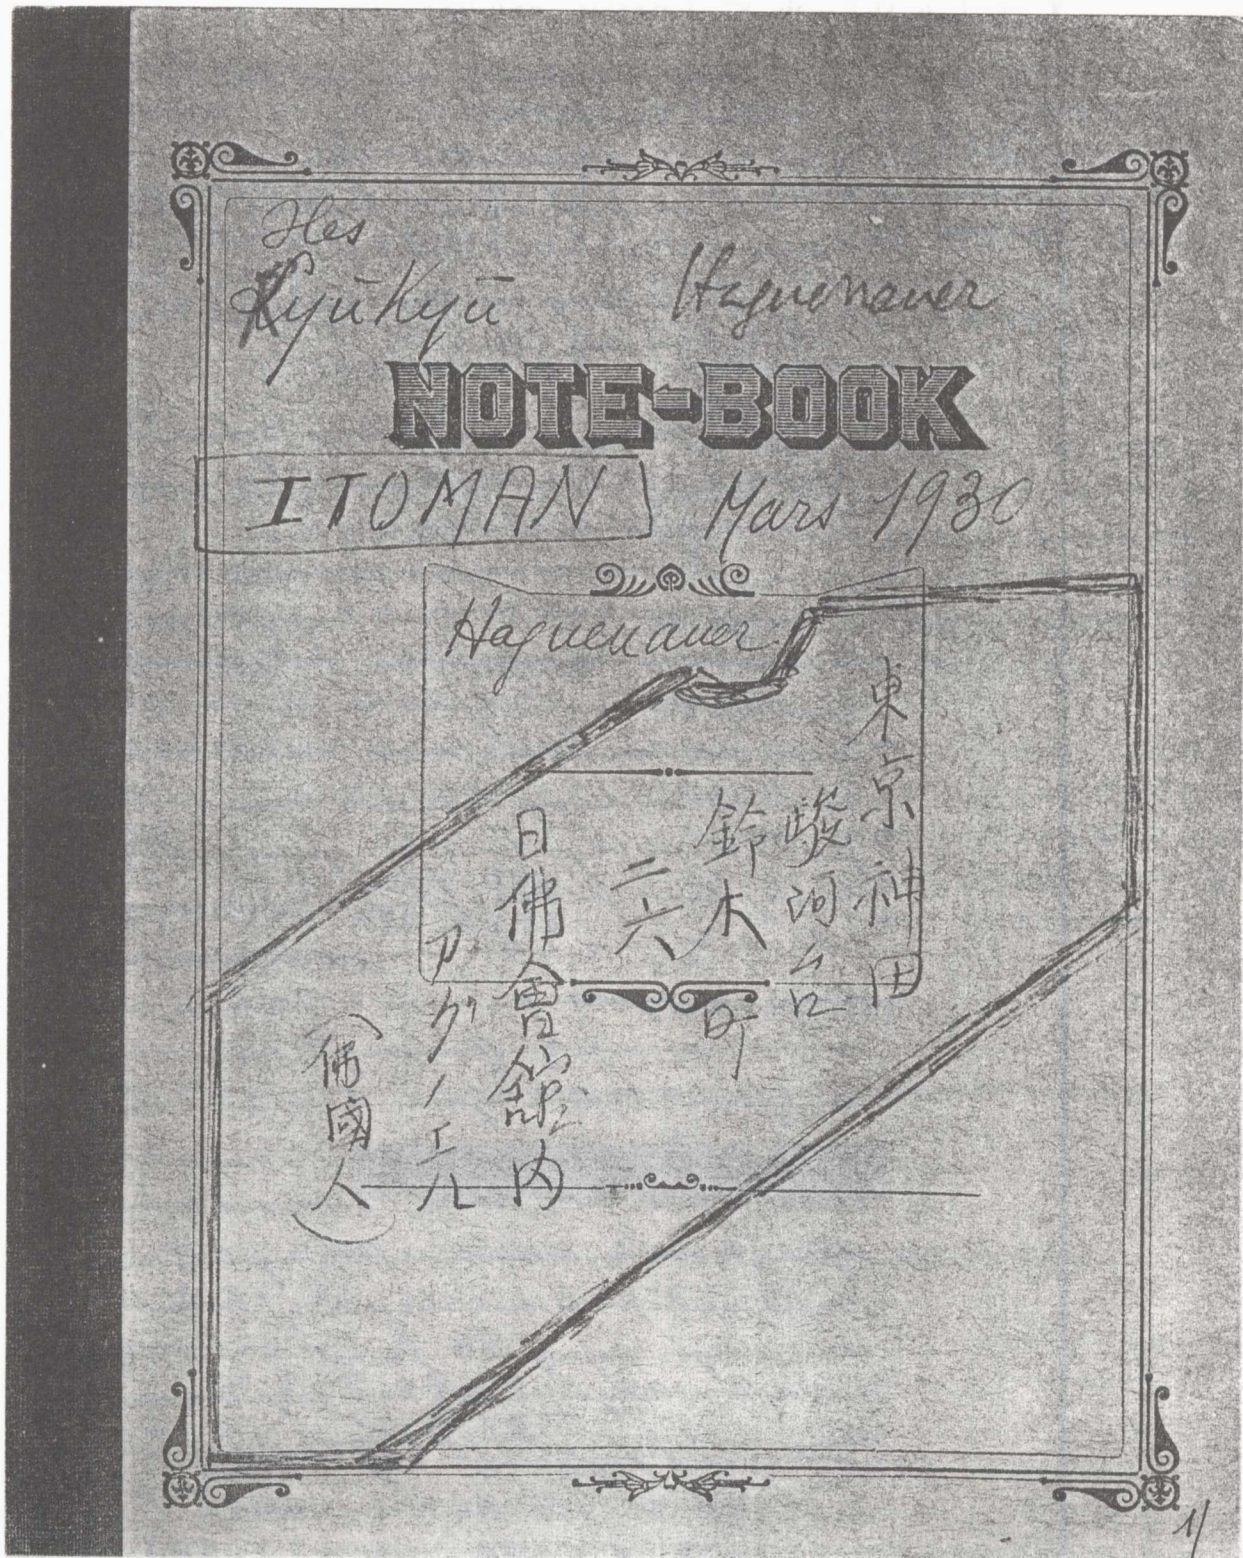 Iles
Ryūkyū
Haguenauer
NOTE-BOOK
ITOMAN
Mars 1930
Haguenauer
東京神田
駿河台
鈴木町
二六
日佛會館内
アグノエル
(佛國人)
1/